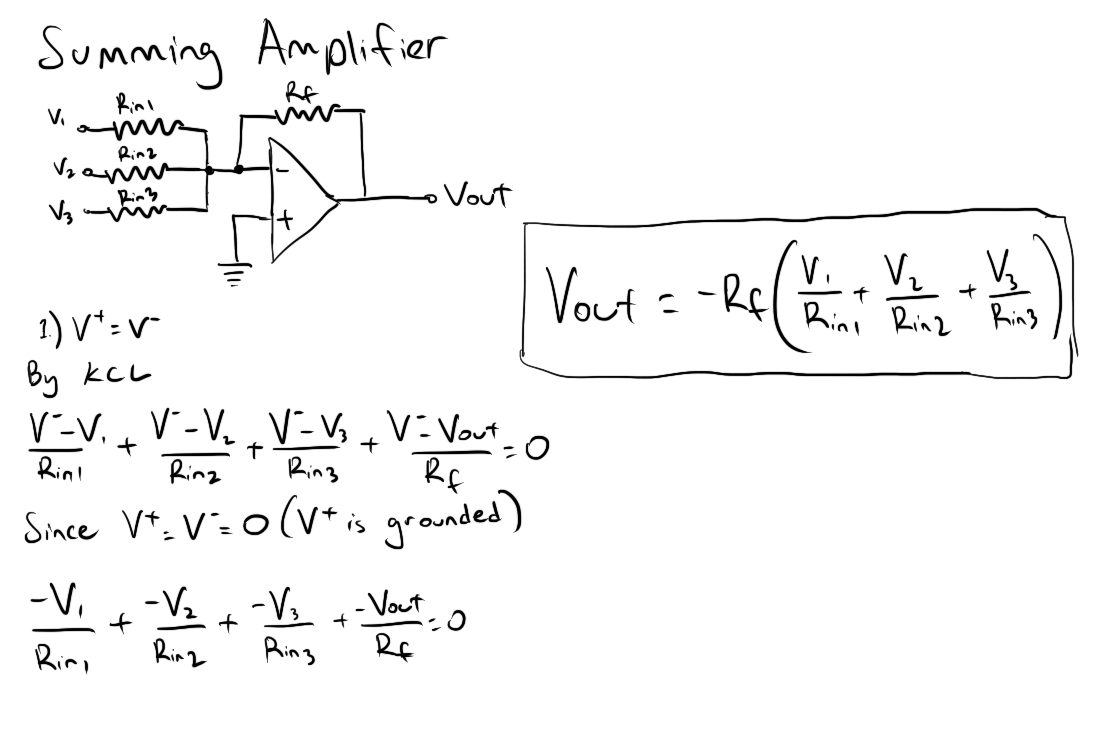 Summing Amplifier
Rf
V₁ Rin1
V₂ Rin2
V₃ Rin3
-
+
Vout
Vout = -Rf(V₁/Rin1 + V₂/Rin2 + V₃/Rin3)
1.) V⁺ = V⁻
By KCL
(V⁻-V₁)/Rin1 + (V⁻-V₂)/Rin2 + (V⁻-V₃)/Rin3 + (V⁻-Vout)/Rf = 0
Since V⁺ = V⁻ = 0 (V⁺ is grounded)
-V₁/Rin1 + -V₂/Rin2 + -V₃/Rin3 + -Vout/Rf = 0